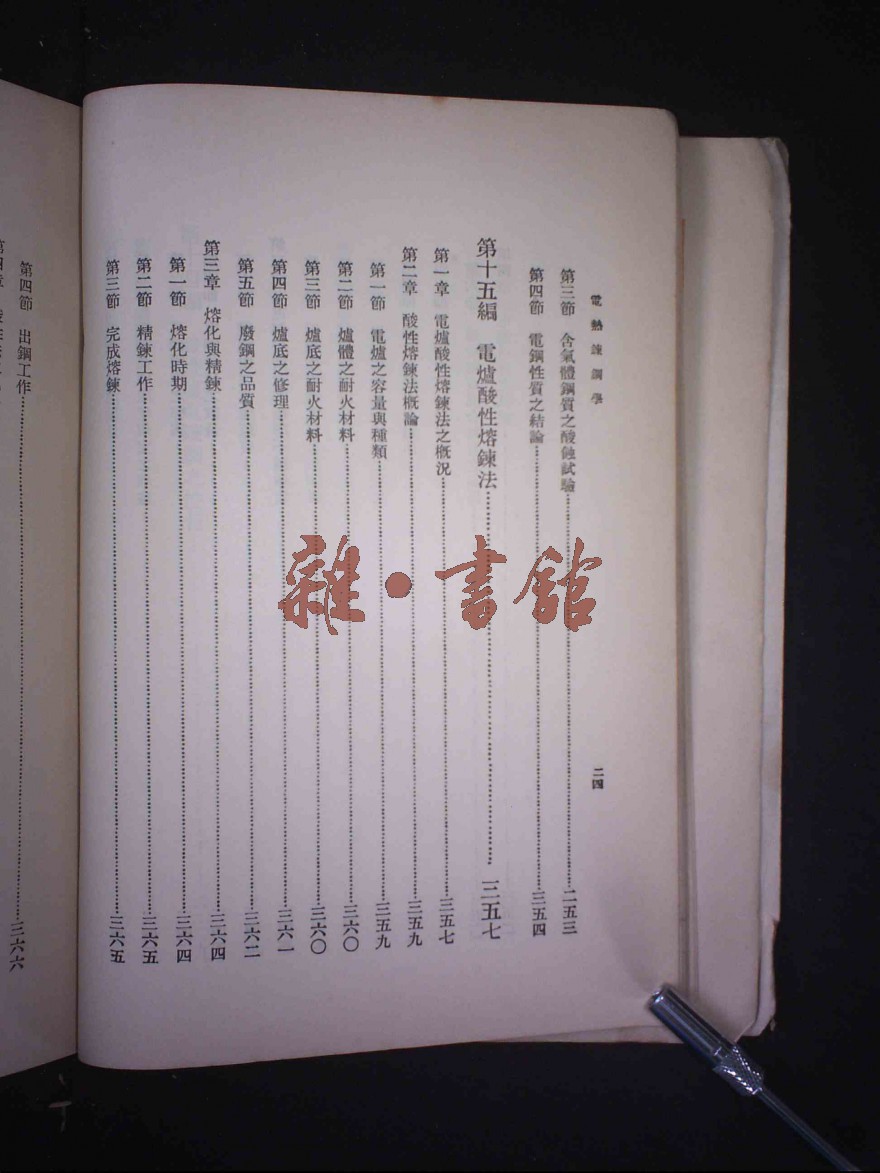 電熱鍊鋼學
二四
第三節　含氣體鋼質之酸蝕試驗……二五三
第四節　電鋼性質之結論……三五四
第十五編　電爐酸性熔鍊法……三五七
第一章　電爐酸性熔鍊法之概況……三五七
第二章　酸性熔鍊法概論……三五九
第一節　電爐之容量與種類……三五九
第二節　爐體之耐火材料……三六〇
第三節　爐底之耐火材料……三六〇
第四節　爐底之修理……三六一
第五節　廢鋼之品質……三六二
第三章　熔化與精鍊……三六四
第一節　熔化時期……三六四
第二節　精鍊工作……三六五
第三節　完成熔鍊……三六五
第四節　出鋼工作……三六六
雜·書館